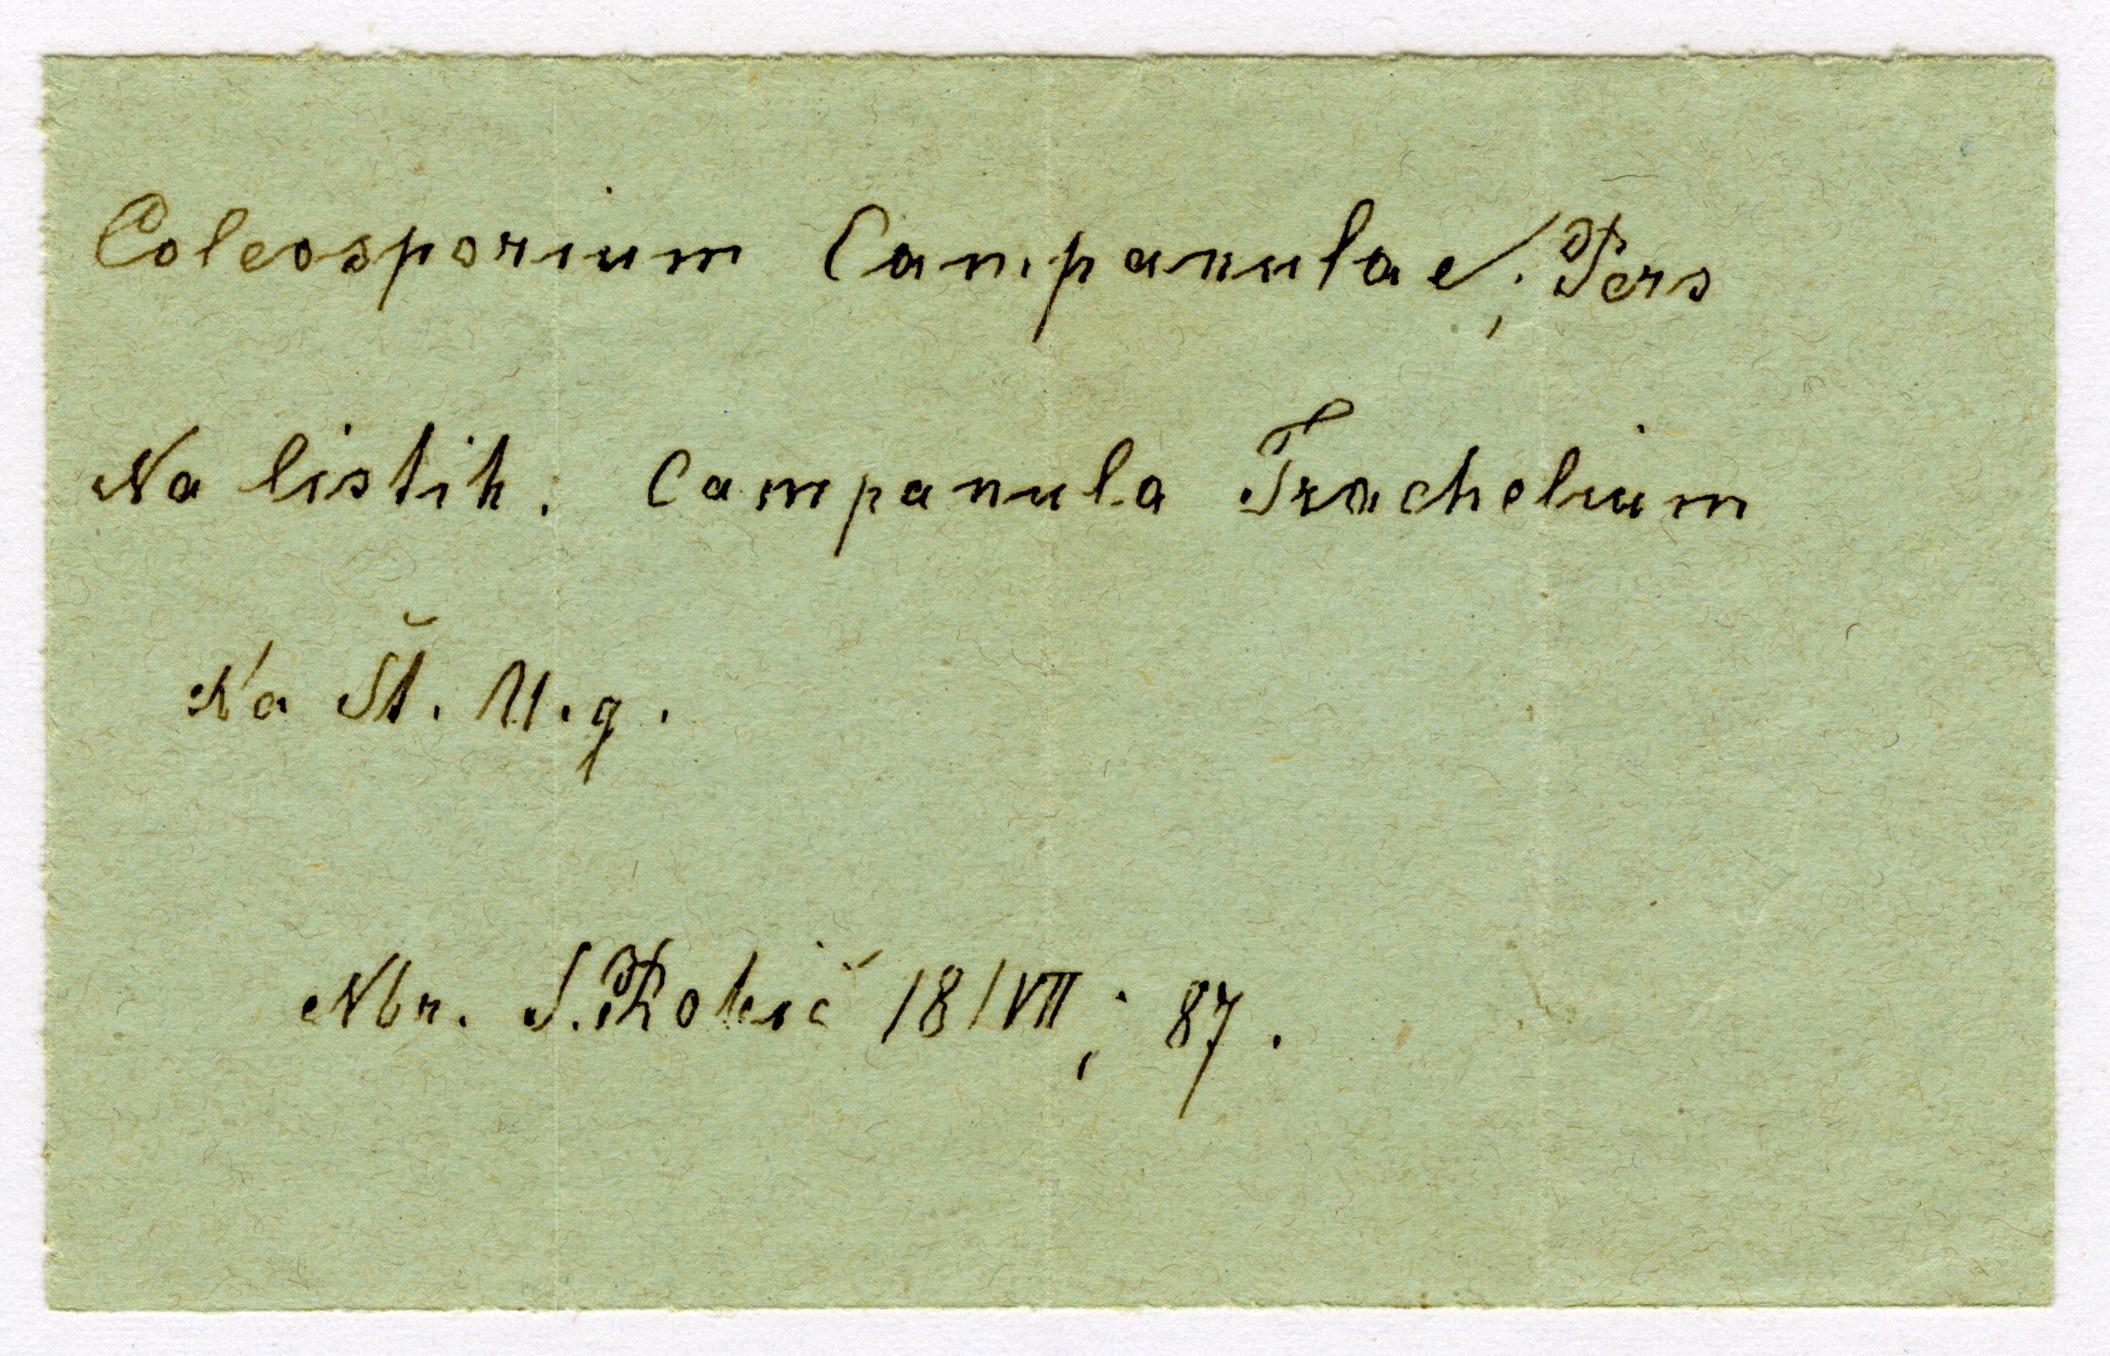 Coleosporium Campanulae; Pers
Na listih. Campanula Trachelium
Na Št. U. g.
Nbr. S. Robič 18/VII; 87.